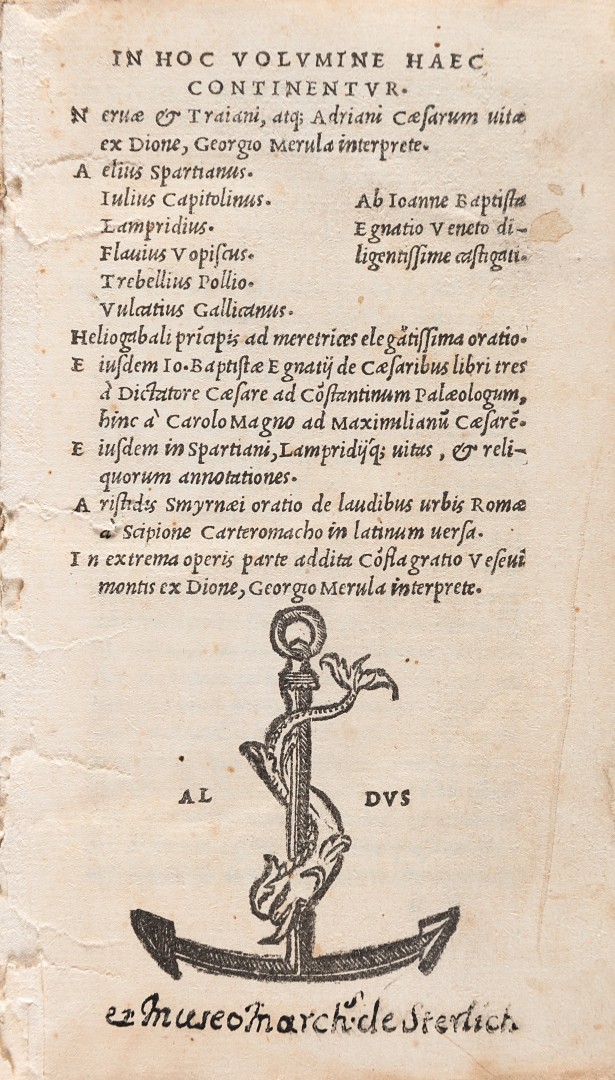 IN HOC VOLVMINE HAEC
CONTINENTVR.
N eruæ & Traiani, atq; Adriani Cæsarum uitæ
ex Dione, Georgio Merula interprete.
A elius Spartianus.
Iulius Capitolinus. Ab Ioanne Baptista
Lampridius. Egnatio Veneto di-
Flauius Vopiscus. ligentissime castigati.
Trebellius Pollio.
Vulcatius Gallicanus.
Heliogabali prícipis ad meretrices elegãtissima oratio.
E iusdem Io. Baptistæ Egnatij de Cæsaribus libri tres
à Dictatore Cæsare ad Cõstantinum Palæologum,
hinc à Carolo Magno ad Maximilianũ Cæsarẽ.
E iusdem in Spartiani, Lampridijq; uitas, & reli-
quorum annotationes.
A ristidis Smyrnæi oratio de laudibus urbis Romæ
à Scipione Carteromacho in latinum uersa.
I n extrema operis parte addita Cõflagratio Veseui
montis ex Dione, Georgio Merula interprete.
AL DVS
ex Museo March.s de Sterlich